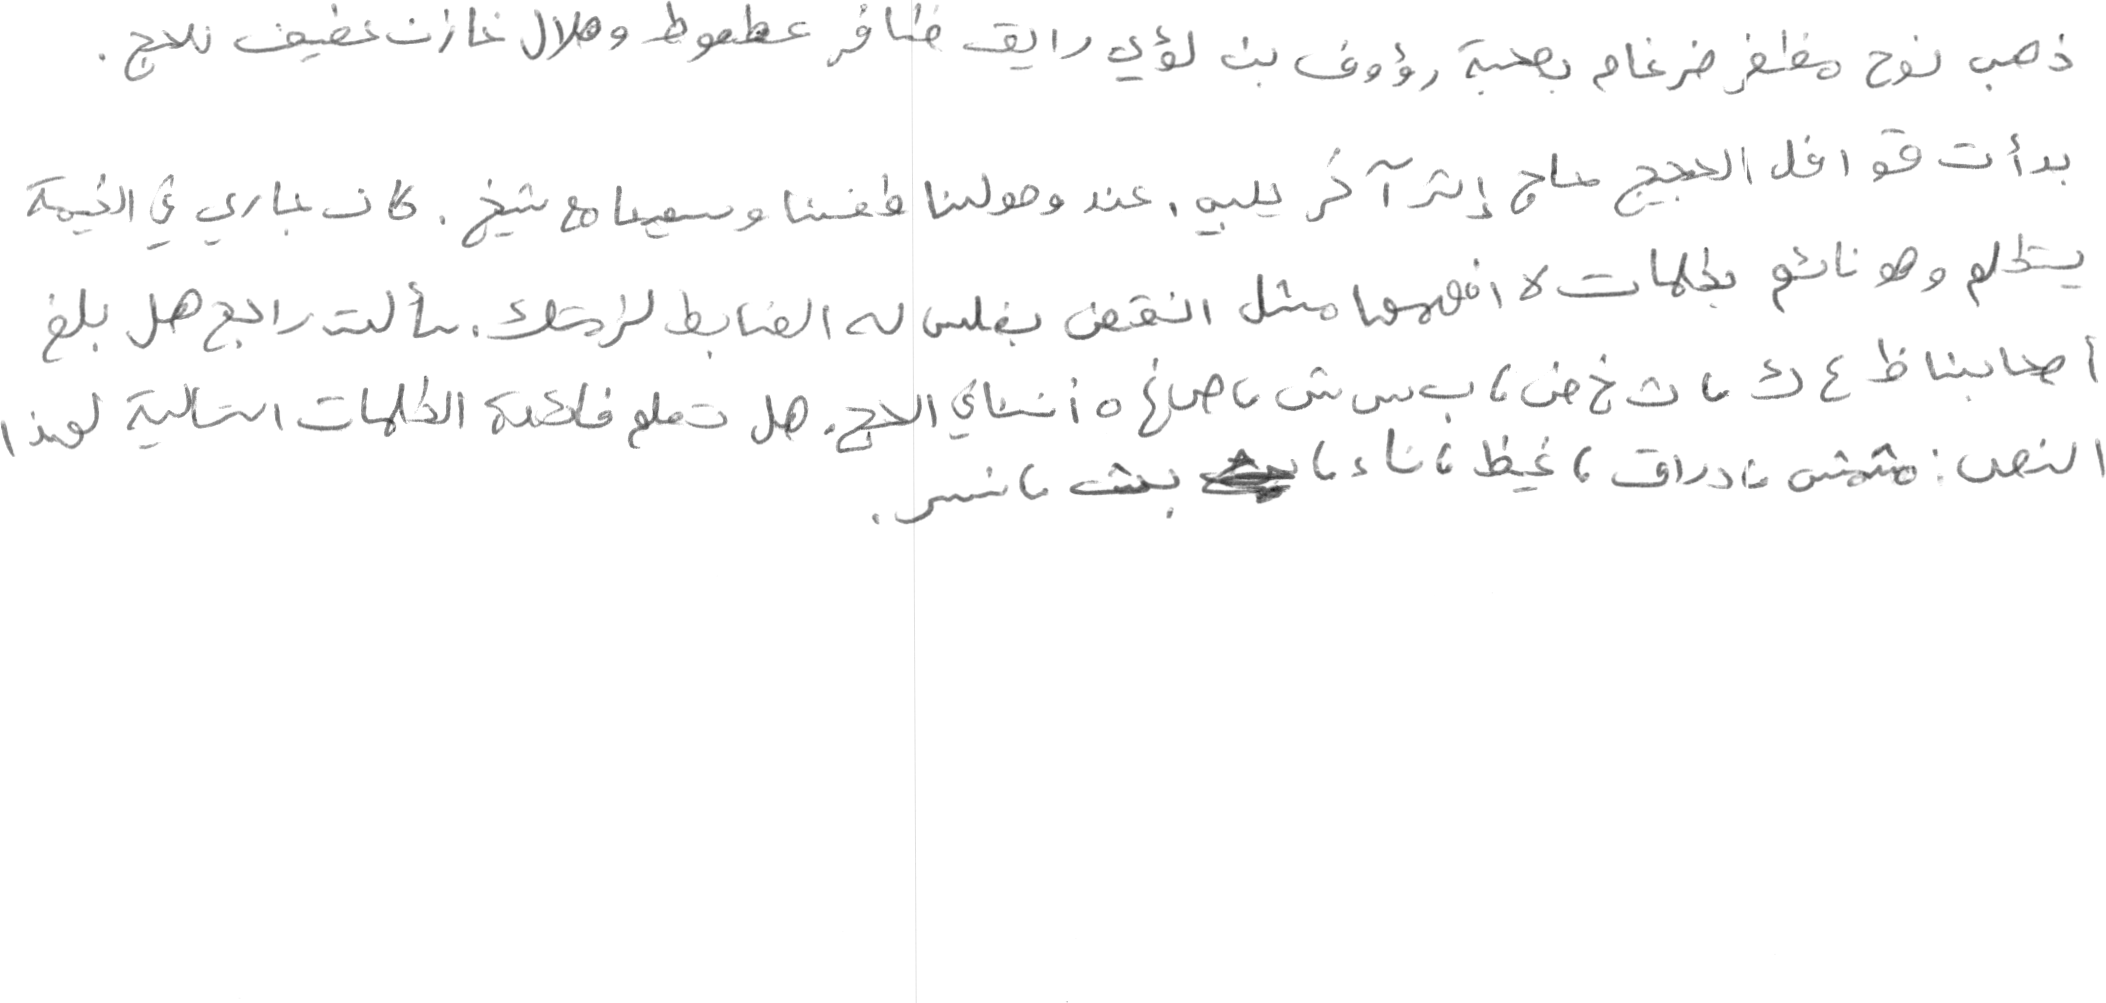 ذهب نوح مظفر ضرغام بصحبة رؤوف بن لؤي رايق ظافر عطعوط وهلال غازن عفيف للحج .
بدأت قوافل الحجيج حاج إثر آخر يلبي . عند وصولنا طفنا وسعينا مع شيخ . كان جاري في الخيمة
يتكلم وهو نائم بكلمات لا افهمها مثل انقض بغلس له الضابط لزحتك . سألت راجح هل بلغ
أصحابنا ظ ع ك ، ث خ ض ، ب س ش ، ص غ ه أنساني الحج . هل تعلم فائدة الكلمات التالية لهذا
النص : مشمش ، دراق ، غيظ ، ناء ، بعث ، نسر .